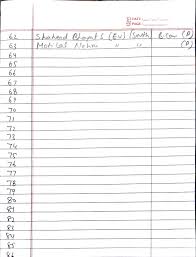 62 Shaheed Bhagat S (Ev) (South)
63 Motilal Nehru " " (D)
64
65
66
67
68
69
70
71
72
73
74
75
76
77
78
79
80
81
82
83
84
85